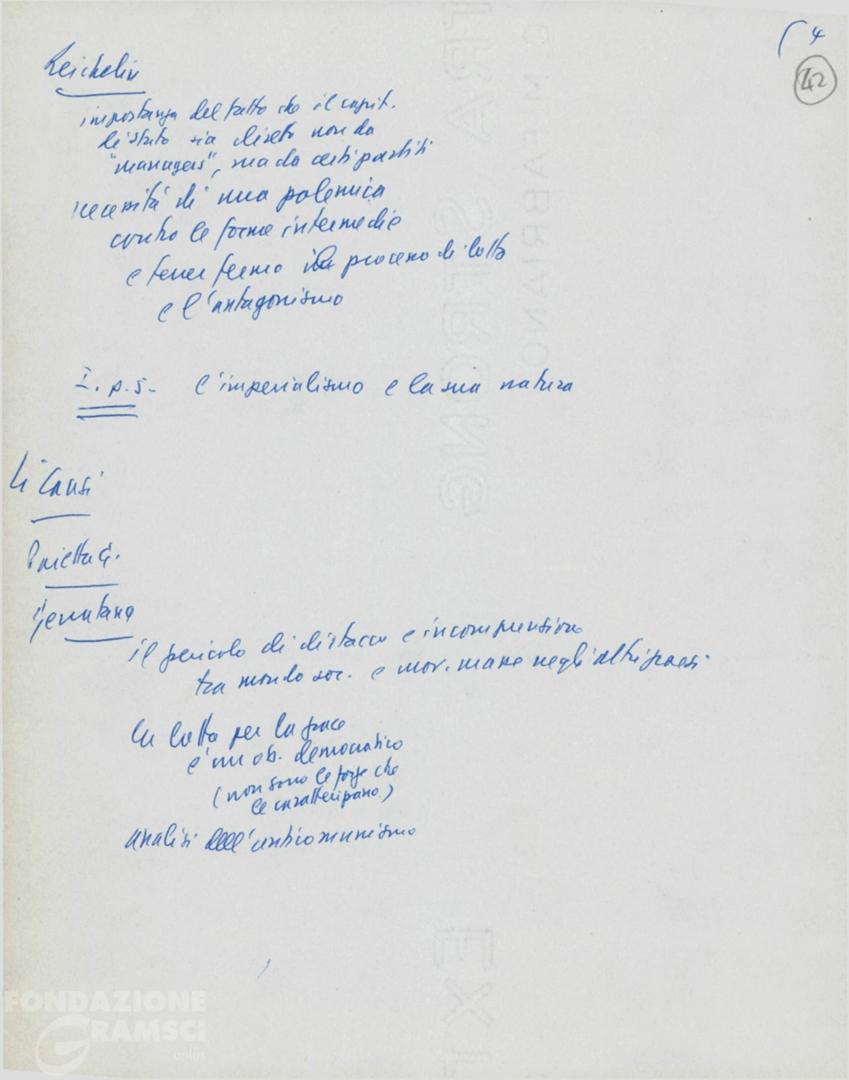 4
42
Reichelin
importanza del fatto che il capit.
di stato sia diretto non da
"managers", ma da certi partiti
necessità di una polemica
contro le forme intermedie
e tener fermo il processo di lotta
e l'antagonismo
I. p. 5 - l'imperialismo e la sua natura
Li Causi
Pajetta G.
Gerratana
il pericolo di distacco e incomprensione
tra mondo soc. e mov. masse negli altri paesi
la lotta per la pace
è un ob. democratico
(non sono le forze che
le caratterizzano)
analisi dell'anticomunismo
C.M. FABRIANO
EXTRA STRONG
EXT
FONDAZIONE
GRAMSCI
onlus